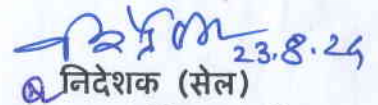 23.8.24
निदेशक (सेल)